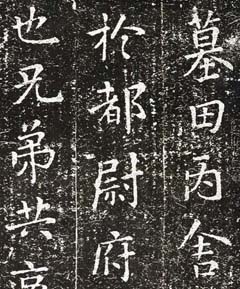 墓田丙舍
於都尉府
也兄弟共哀